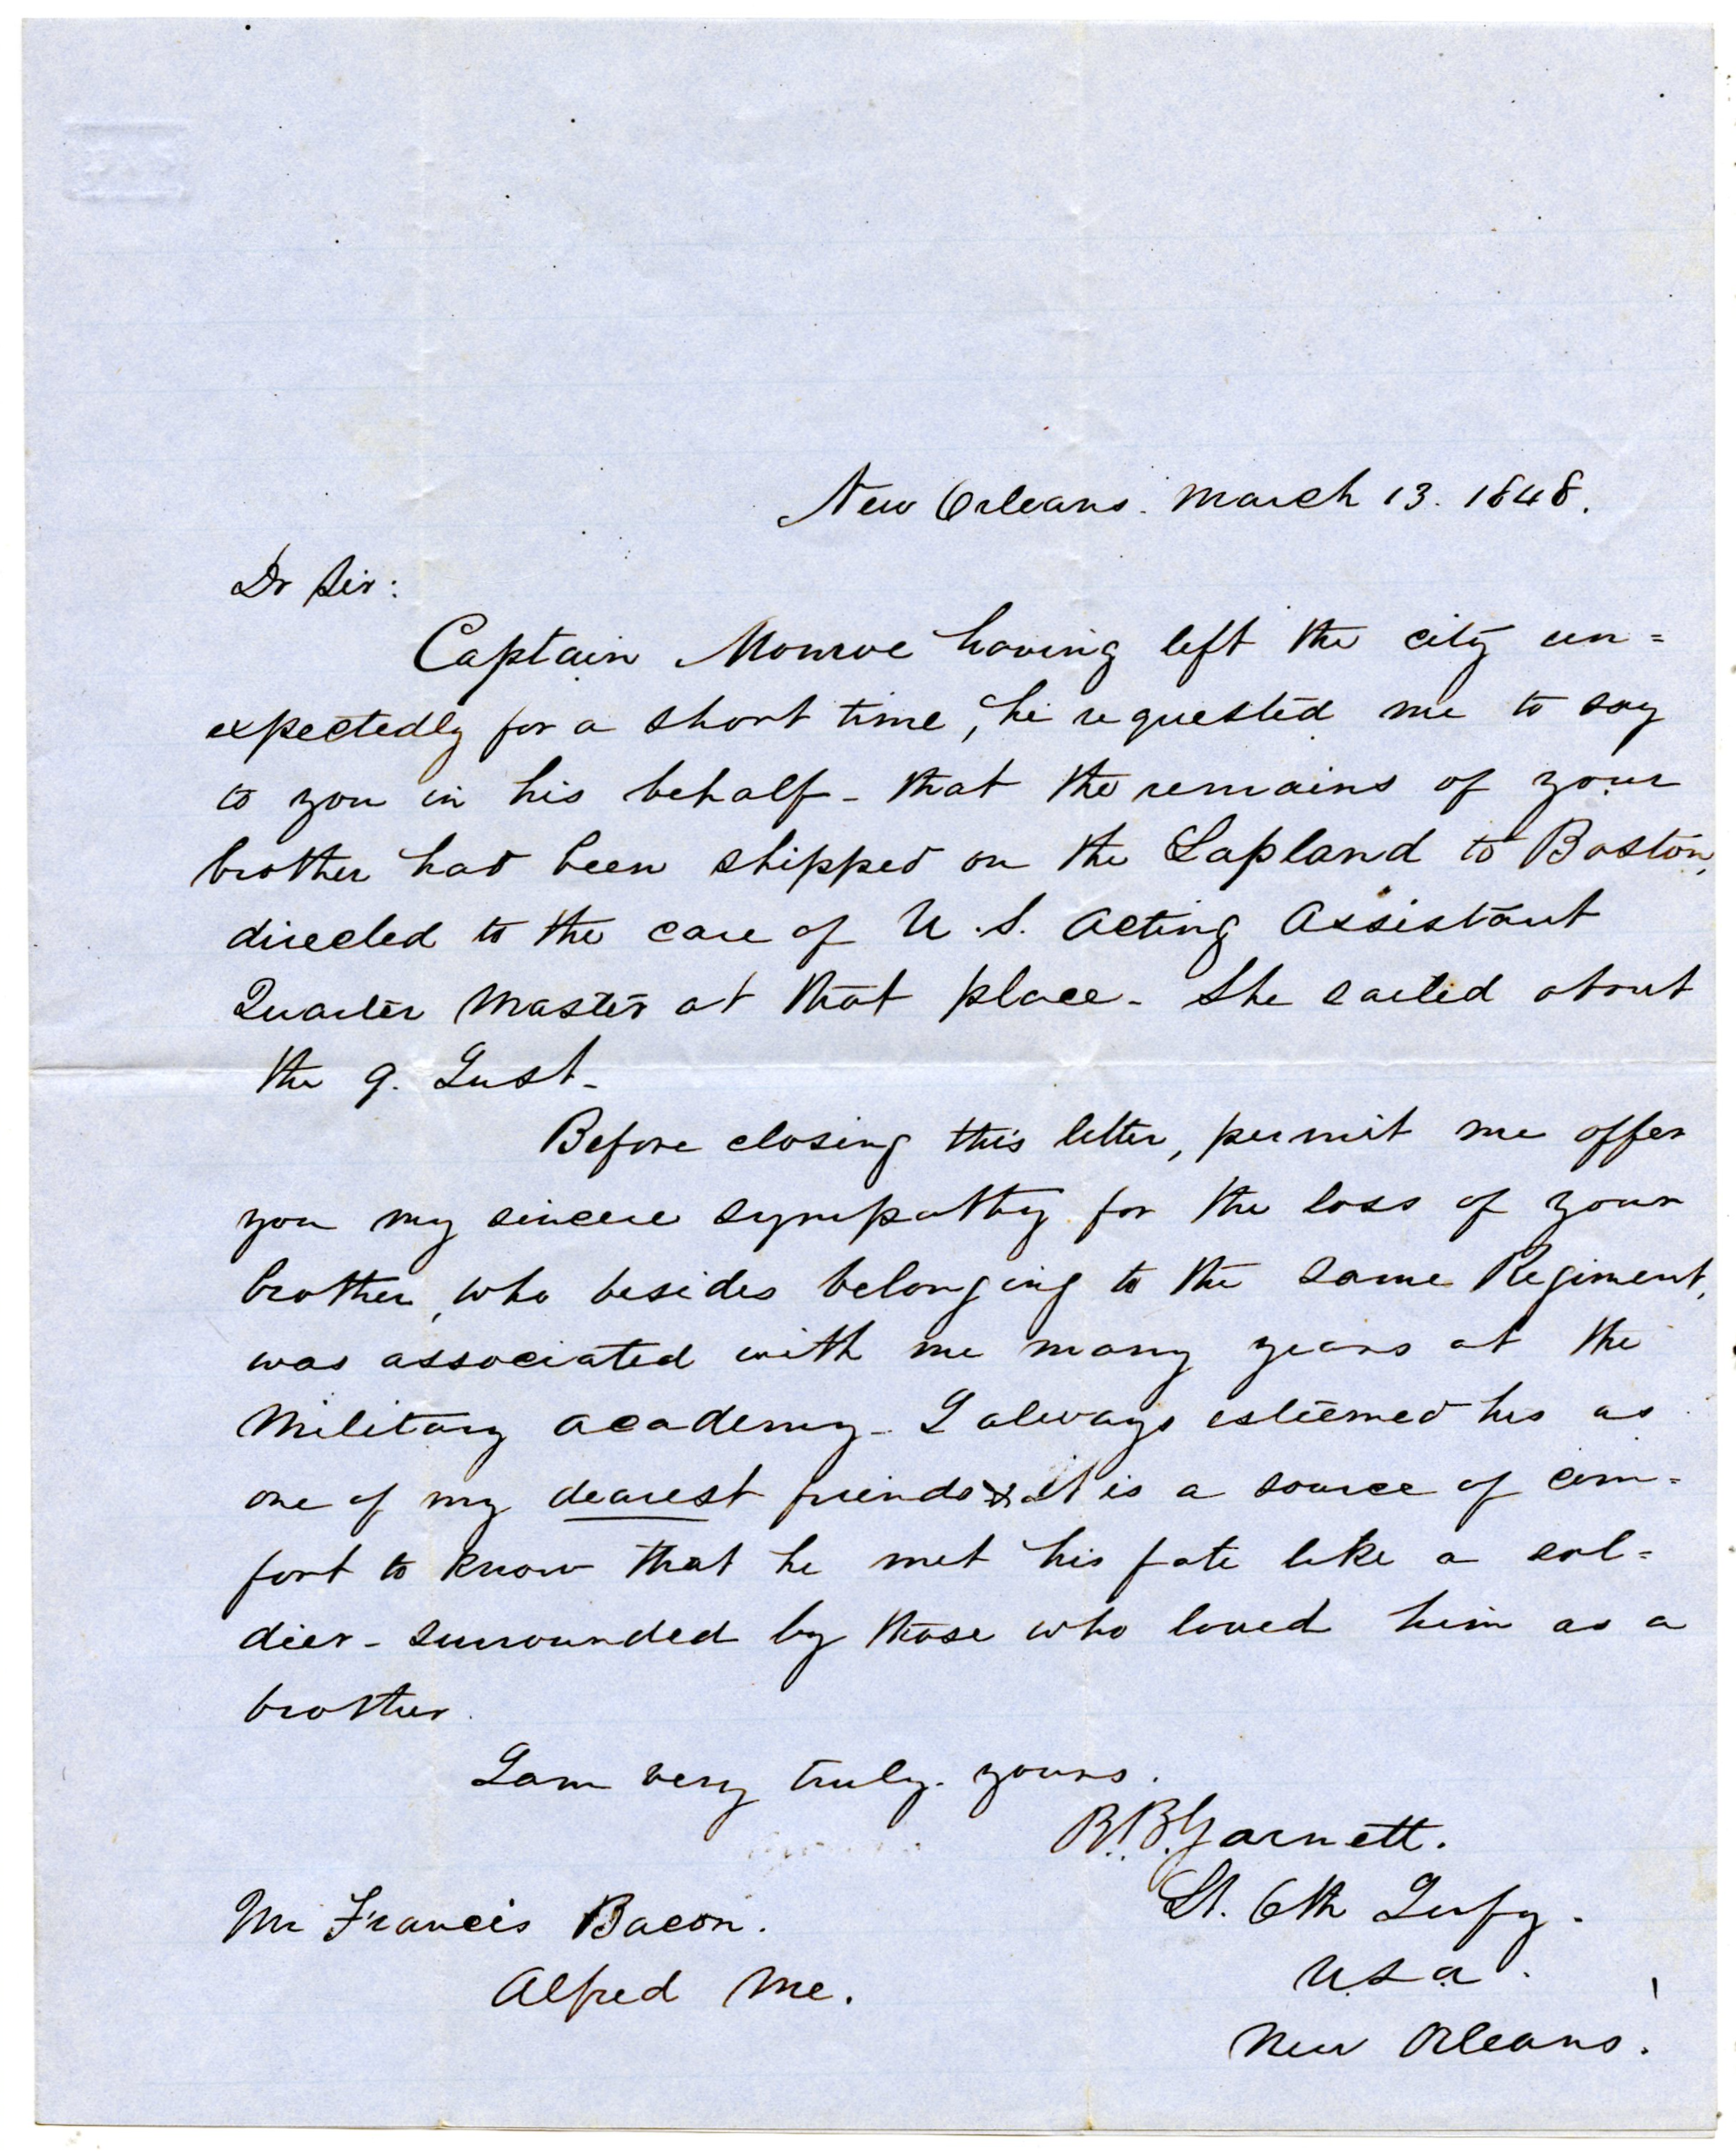 New Orleans. March 13. 1848.
Dr Sir:
Captain Monroe having left the city un=
expectedly for a short time, he requested me to say
to you in his behalf - that the remains of your
brother had been shipped on the Lapland to Boston,
directed to the care of U.S. Acting Assistant
Quarter Master at that place - She sailed about
the 9. Inst -
Before closing this letter, permit me offer
you my sincere sympathy for the loss of your
brother, who besides belonging to the same Regiment,
was associated with me many years at the
Military Academy - I always esteemed his as
one of my dearest friends & it is a source of com=
fort to know that he met his fate like a sol=
dier - surrounded by those who loved him as a
brother.
I am very truly. yours.
R.B. Garnett.
Lt. 6th Infy.
U.S.A.
New Orleans.
Mr Francis Bacon.
Alfred Me.